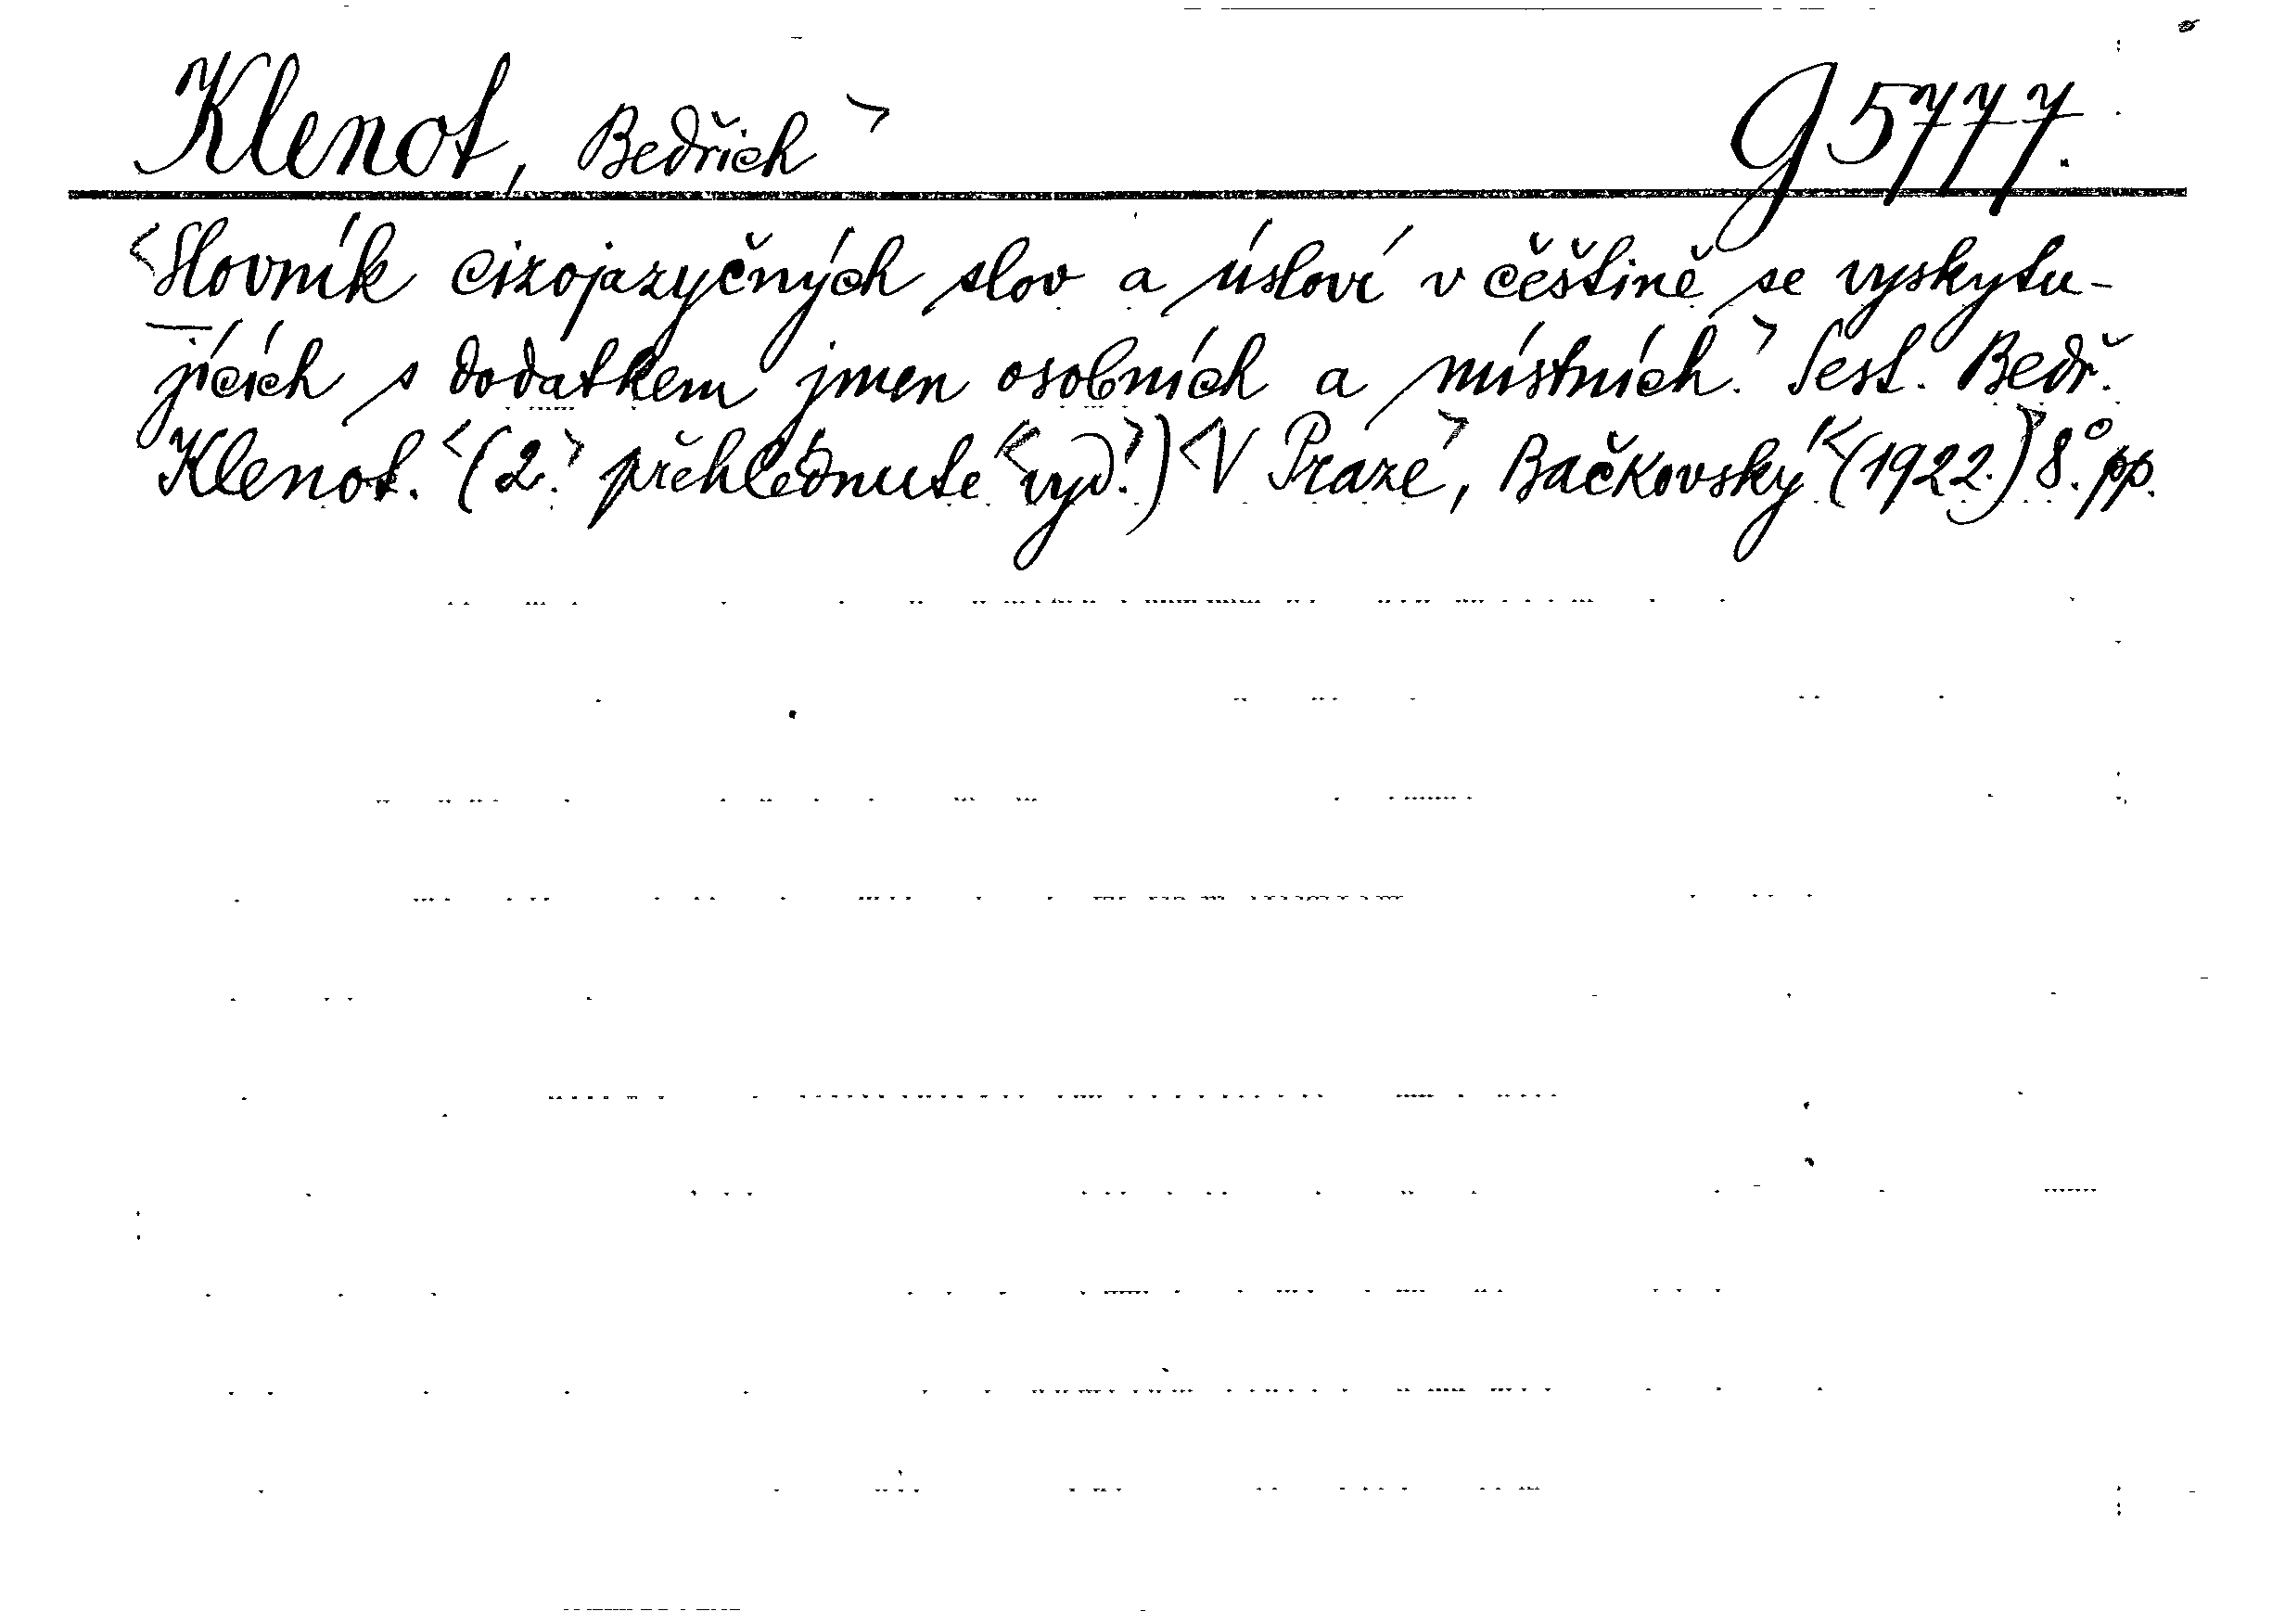 Klenot, Bedřich> G 5777.
<Slovník cizojazyčných slov a úsloví v češtině se vyskytu-
jících s dodatkem jmen osobních a místních.> Sest. Bedř.
Klenot. <(2.> přehlédnuté <vyd.>) <V Praze>, Bačkovský <(1922.)> 8°. pp.